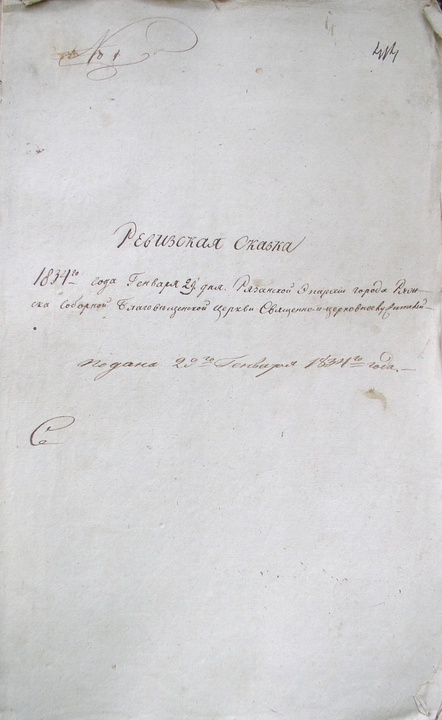 № 1
414
Ревизская Сказка
1834го года Генваря 29 дня. Рязанской Эпархии города Ряж-
ска Соборной Благовещенской Церкви Священно и церковнослужителей
подана 29го Генваря 1834го года.